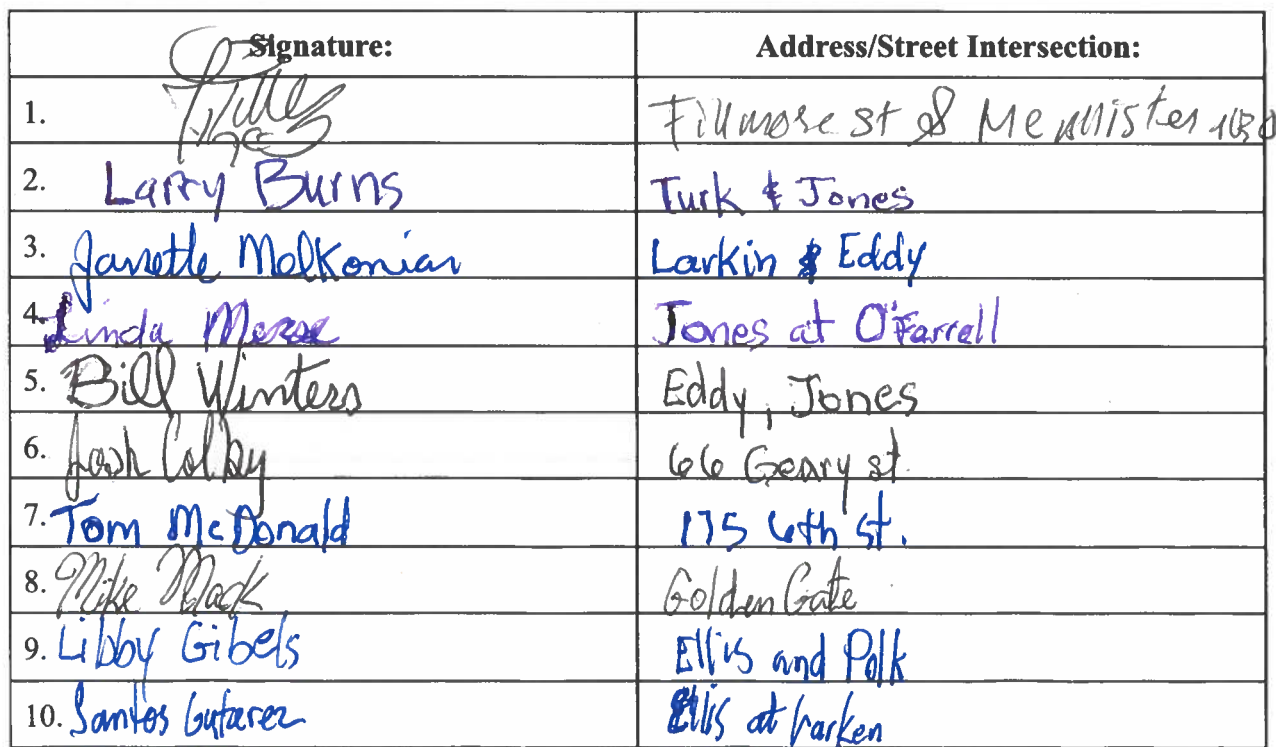 Signature: Address/Street Intersection:
1. Fillmore st &
2. Larry Burns Turk & Jones
3. Janette Melkonian Larkin & Eddy
4. Linda Jones at O'Farrell
5. Bill Winters Eddy, Jones
6. Josh Colby 66 Geary st.
7. Tom McDonald 175 6th st.
8. Mike Mack Golden Gate
9. Libby Gibels Ellis and Polk
10. Santos Gutarez Ellis at Larken